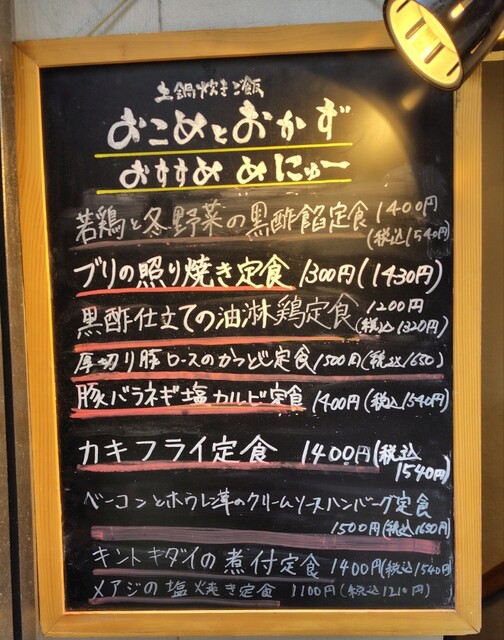 土鍋炊きご飯
おこめとおかず
おすすめ めにゅー
若鶏と冬野菜の黒酢餡定食 1400円
(税込1540円)
ブリの照り焼き定食 1300円(1430円)
黒酢仕立ての油淋鶏定食 1200円
(税込1320円)
厚切り豚ロースのかつとじ定食 1500円(税込1650)
豚バラネギ塩カルビ定食 1400円(税込1540円)
カキフライ定食 1400円(税込
1540円)
ベーコンとホウレン草のクリームソースハンバーグ定食
1500円(税込1650円)
キントキダイの煮付定食 1400円(税込1540円)
メアジの塩焼き定食 1100円(税込1210円)